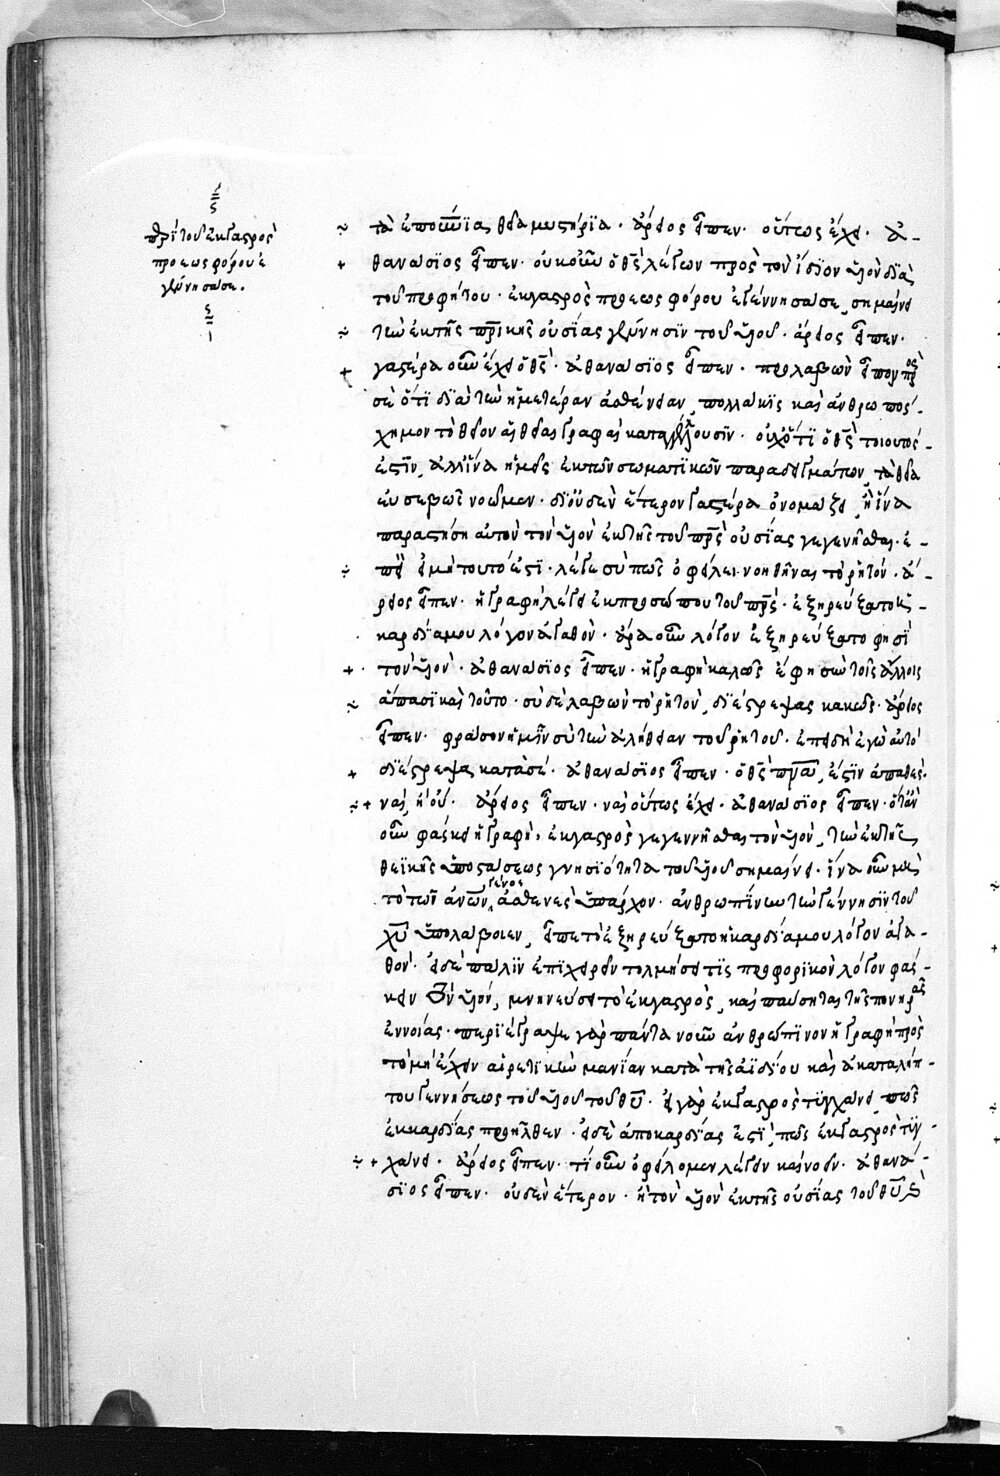 περὶ τοῦ ἐκ γαστρὸς
πρὸ ἑωσφόρου ἐ
γέννησά σε.
τὰ ἐπουράνια θεῖα μυστήρια. ἄρειος εἶπεν. οὕτως ἔχει. ἀ-
θανάσιος εἶπεν. οὐκοῦν ὁ θς λέγων πρὸς τὸν ἴδιον υἱὸν διὰ
τοῦ προφήτου. ἐκ γαστρὸς πρὸ ἑωσφόρου ἐγέννησά σε, σημαίνει
τὴν ἐκ τῆς πρικῆς οὐσίας γέννησιν τοῦ υἱοῦ. ἄρειος εἶπεν.
γαστέρα οὖν ἔχει ὁ θς. ἀθανάσιος εἶπεν. προλαβὼν εἶπον πρὸς
σὲ ὅτι διὰ τὴν ἡμετέραν ἀσθένειαν, πολλάκις καὶ ἀνθρωπος-
χημον τὸ θεῖον αἱ θεῖαι γραφαὶ καταλέγουσιν. οὐχ ὅτι ὁ θς τοιοῦτός
ἐστιν, ἀλλ' ἵνα ἡμεῖς ἐκ τῶν σωματικῶν παραδειγμάτων τὰ θεῖα
εὐσεβῶς νοῶμεν. δι' οὐδὲν ἕτερον γαστέρα ὀνομάζει, ἢ ἵνα
παραστήση αὐτὸν τὸν υἱὸν ἐκ τῆς τοῦ πρς οὐσίας γεγενῆσθαι. ἐ-
πεὶ εἰ μὴ τοῦτό ἐστι. λέγε σὺ πῶς ὀφείλει νοηθῆναι τὸ ῥητόν. ἄ-
ρειος εἶπεν. ἡ γραφὴ λέγει ἐκ προσώπου τοῦ πρς. ἐξηρεύξατο ἡ
καρδία μου λόγον ἀγαθόν. ἄρα οὖν λόγον ἐξηρεύξατο φησὶ
τὸν υἱόν. ἀθανάσιος εἶπεν. ἡ γραφὴ καλῶς ἔφη σὺν τοῖς ἄλλοις
ἅπασι καὶ τοῦτο. σὺ δὲ λαβὼν τὸ ῥητόν, διέστρεψας κακῶς. ἄρειος
εἶπεν. φράσον ἡμῖν σὺ τὴν ἀλήθειαν τοῦ ῥητοῦ. ἐπειδὴ ἐγὼ αὐτὸ
διέστρεψα κατὰ σέ. ἀθανάσιος εἶπεν. ὁ θς πνα, ἐστιν ἀπαθές.
ναὶ, ἢ οὔ. ἄρειος εἶπεν. ναὶ οὕτως ἔχει. ἀθανάσιος εἶπεν. ὅταν
οὖν φάσκει ἡ γραφὴ, ἐκ γαστρὸς γεγεννῆσθαι τὸν υἱόν, τὴν ἐκ τῆς
θεϊκῆς ὑποστάσεως γνησιότητα τοῦ υἱοῦ σημαίνει. ἵνα οὖν μὴ
τὸ τῶν ἀνων γένος ἀσθενὲς ὑπάρχον. ἀνθρωπίνην τὴν γέννησιν τοῦ
χυ ὑπολάβοιεν, εἶπε τὸ ἐξηρεύξατο ἡ καρδία μου λόγον ἀγα-
θόν. εἰ δὲ πάλιν ἐπιχειρεῖν τολμήσει τις προφορικὸν λόγον φάσ-
κειν τὸν υἱόν, μνηνεύσει τὸ ἐκ γαστρὸς, καὶ παύσηται τῆς πονηρᾶς
ἐννοίας. περιέγραψε γὰρ πάντα νοῦν ἀνθρώπινον ἡ γραφὴ πρὸς
τὸ μὴ ἔχειν αἱρετικὴν μανίαν κατὰ τῆς ἀϊδίου καὶ ἀκαταλήπ-
του γεννήσεως τοῦ υἱοῦ τοῦ θυ. εἰ γὰρ ἐκ γαστρὸς τυγχάνει, πῶς
ἐκ καρδίας προῆλθεν. εἰ δὲ ἀπὸ καρδίας ἐστὶ, πῶς ἐκ γαστρὸς τυγ-
χάνει. ἄρειος εἶπεν. τί οὖν ὀφείλομεν λέγειν καὶ νοεῖν. ἀθανά-
σιος εἶπεν. οὐδὲν ἕτερον. ἢ τὸν υἱὸν ἐκ τῆς οὐσίας τοῦ θυ καὶ